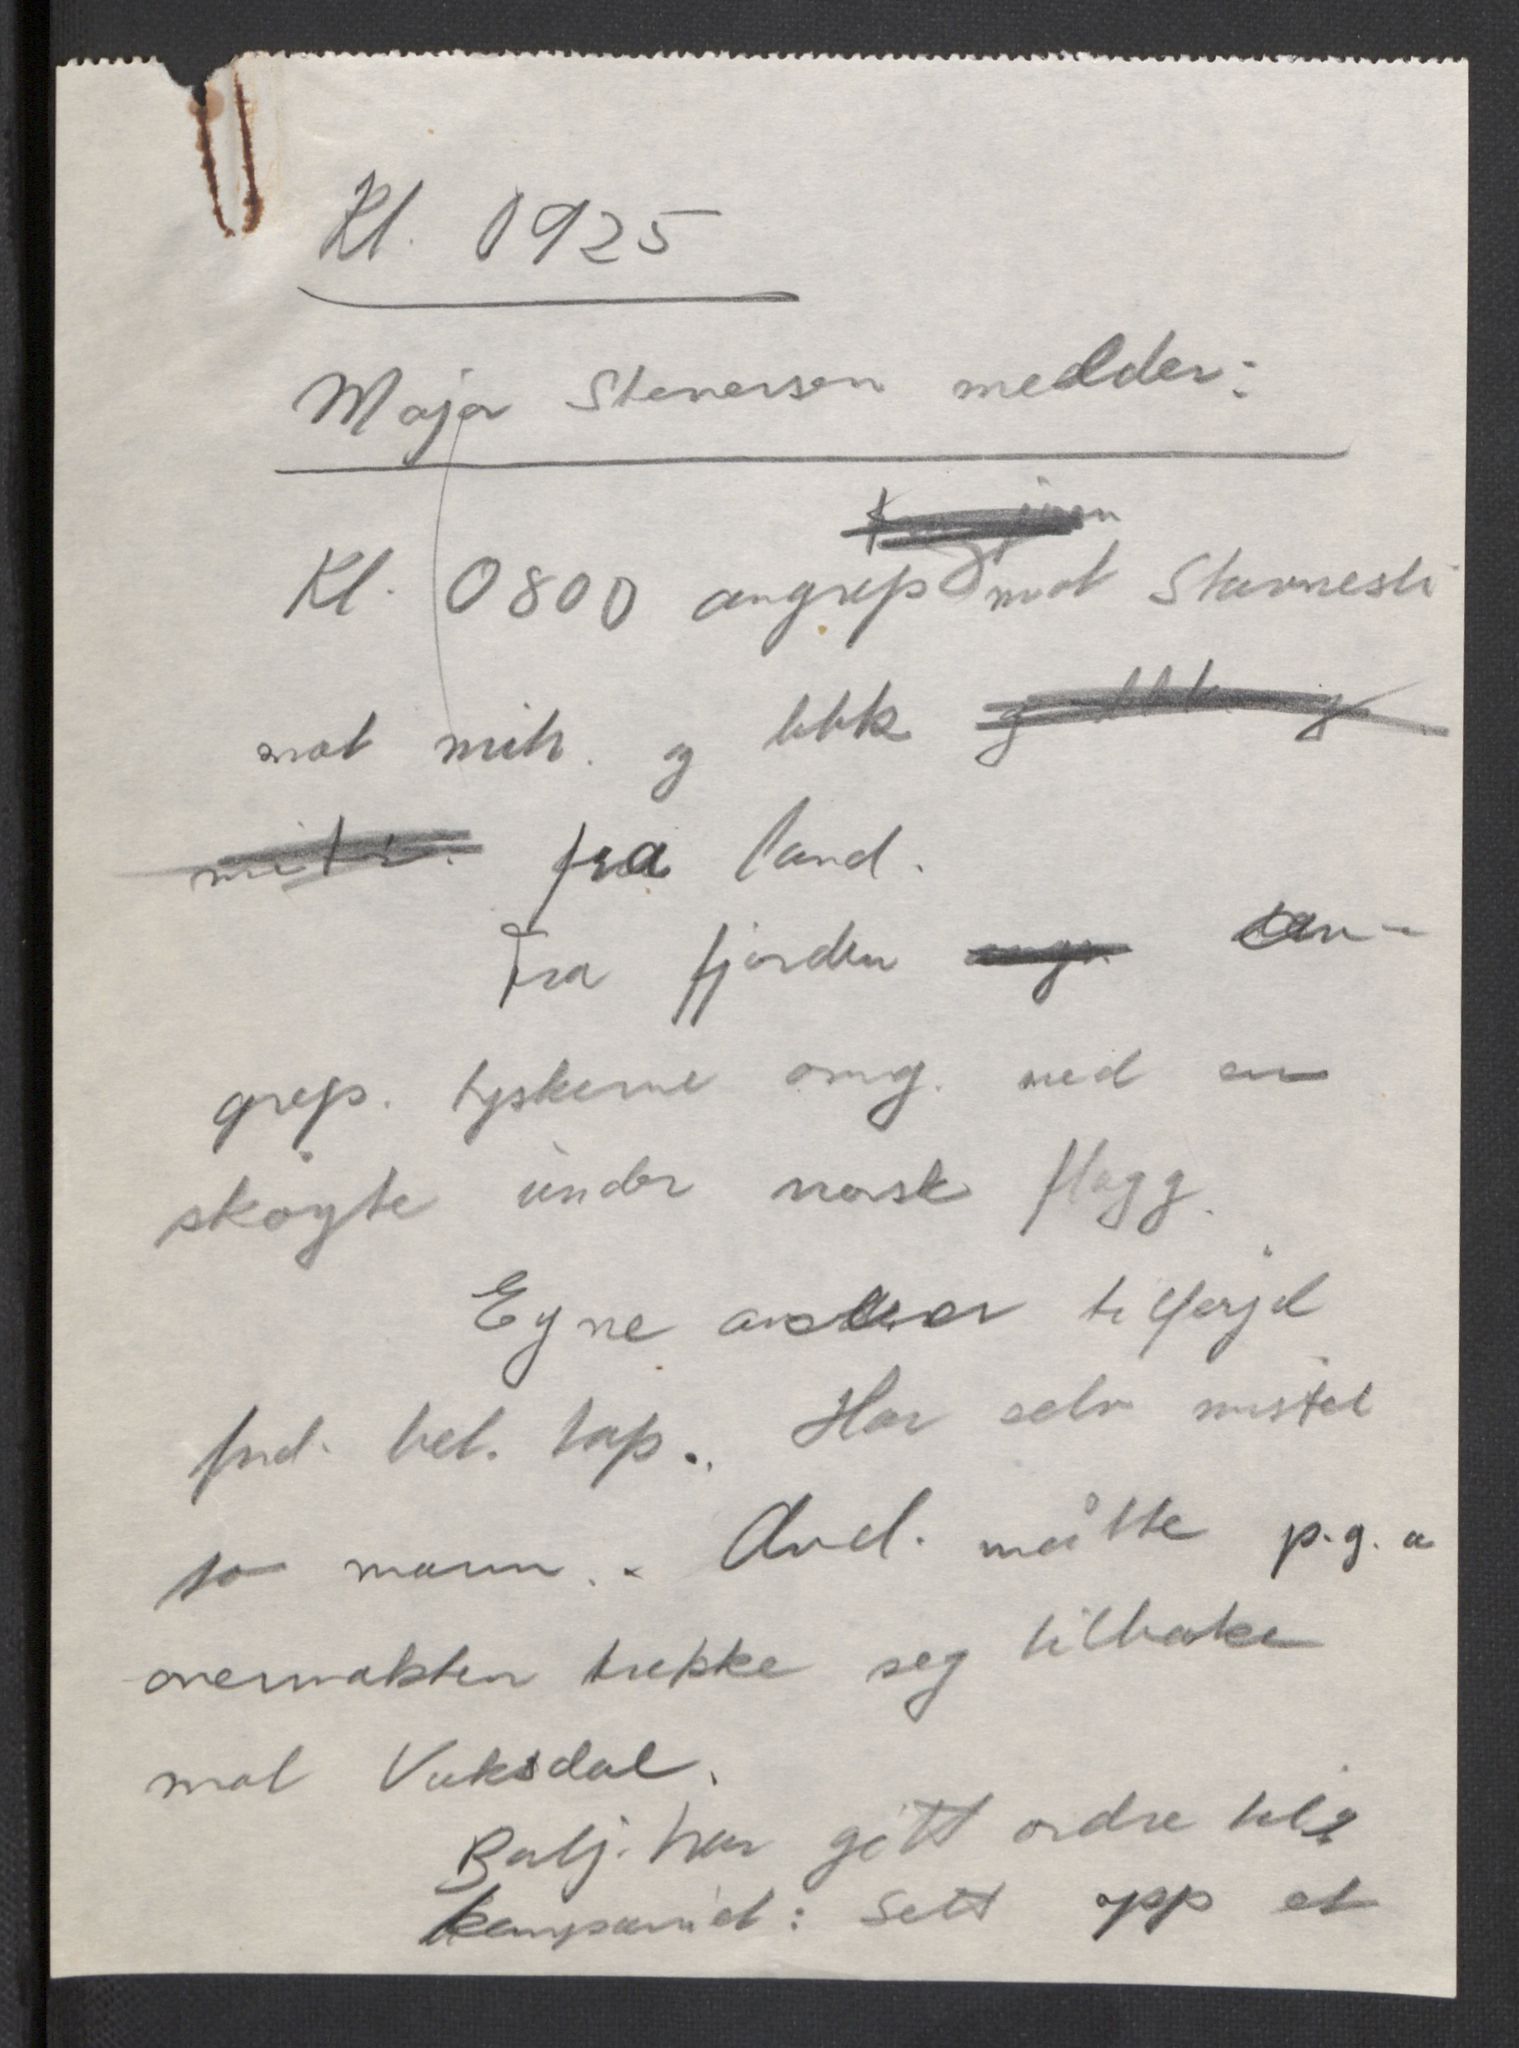 Kl. 0925
Major Stenersen melder:
Kl. 0800 angrep mot Stavnesli
mot mitr. og bbk
mitr. fra land.
Fra fjorden angr. an-
grep. tyskerne omg. med en
skøyte under norsk flagg.
Egne avd. tilføyd
fnd. bet. tap. Har selv mistet
to mann. Avd. måtte p.g.a
overmakten trekke seg tilbake
mot Vaksdal.
Batlj. har gitt ordre til
kompaniet: Sett opp et